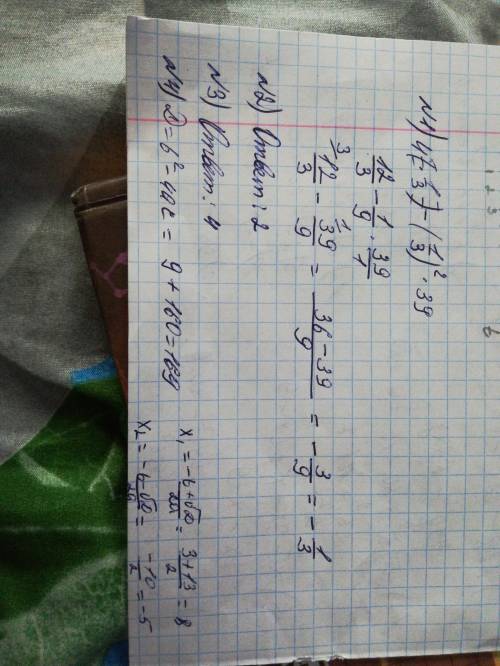 №1) 4(-1/3) - (1/3)² · 39
12/3 - 1/9 · 39/1
12/3 - 39/9 = 36-39/9 = -3/9 = -1/3
№2) Ответ: 2
№3) Ответ: 4
№4) D = b² - 4ac = 9 + 160 = 169
x₁ = -b+√D/2a = 3+13/2 = 8
x₂ = -b-√D/2a = -10/2 = -5